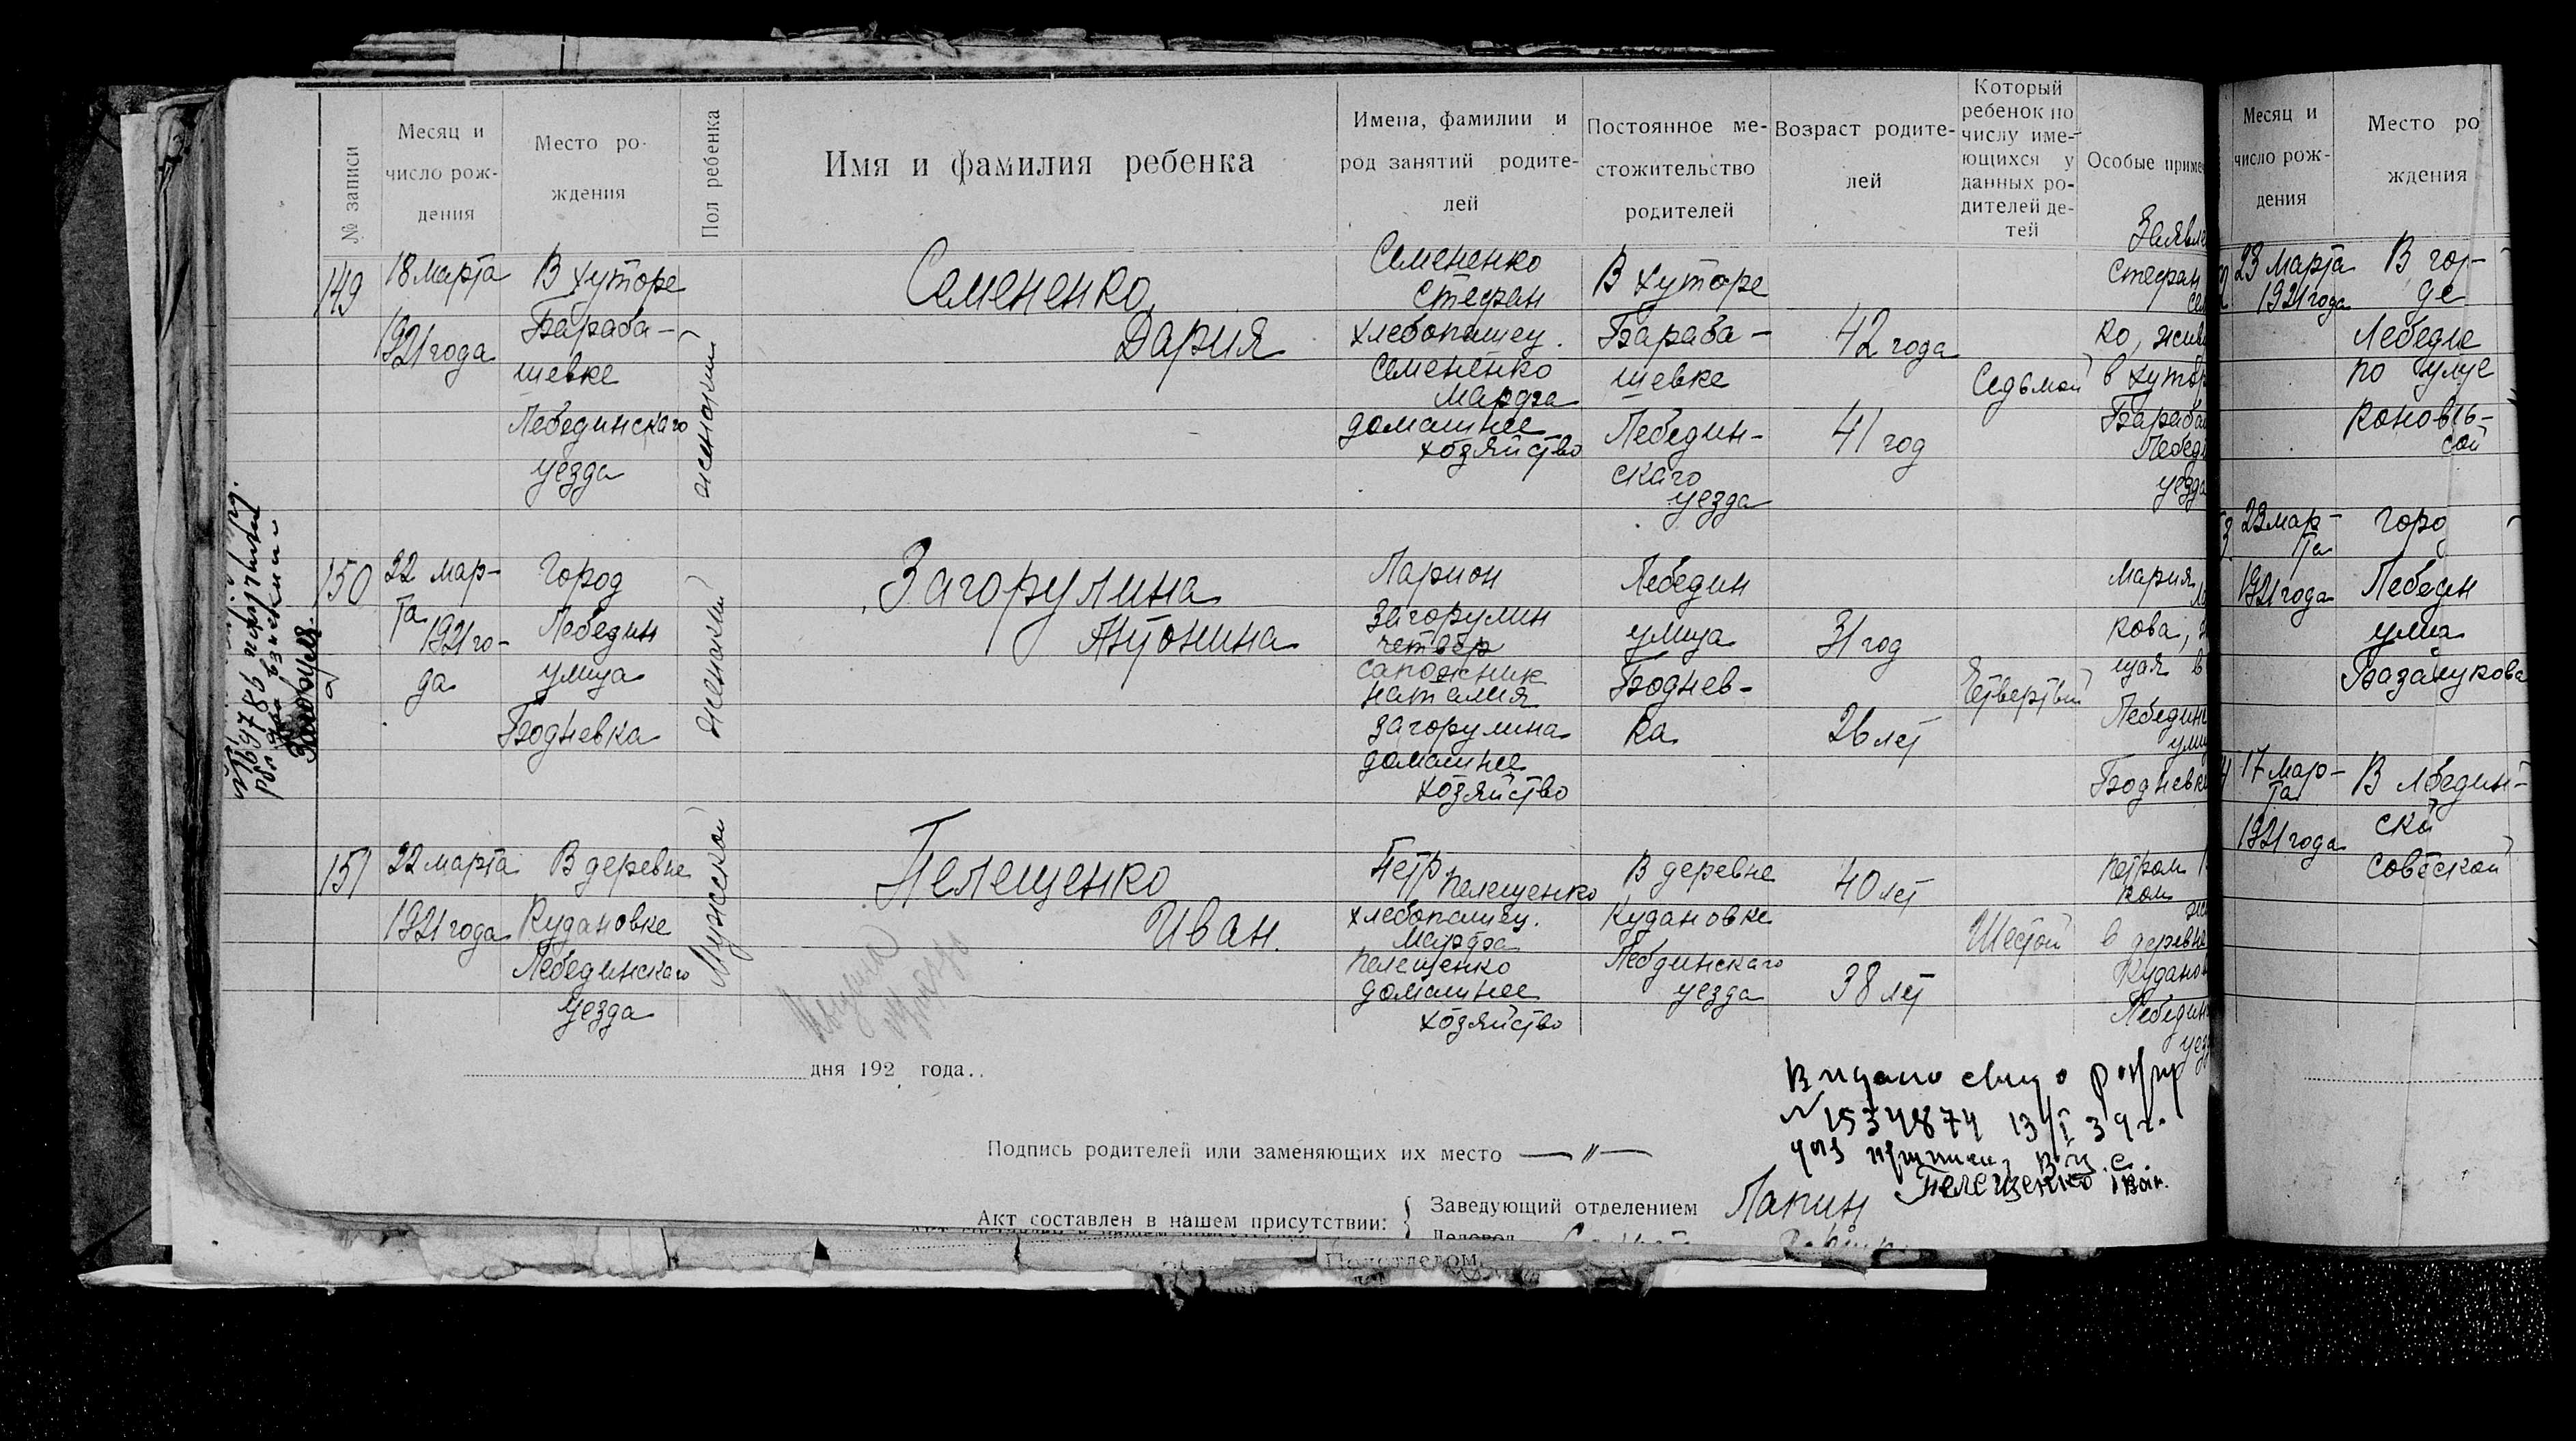 № записи
Месяц и
число рож-
дения
Место ро-
ждения
Пол ребенка
Имя и фамилия ребенка
Имена, фамилии и
род занятий родите-
лей
Постоянное ме-
стожительство
родителей
Возраст родите-
лей
Который
ребенок по
числу име-
ющихся у
данных ро-
дителей де-
тей
Особые приме
149
18 марта
1921 года
В хуторе
Бараба-
шевке
Лебединскаго
уезда
женский
Семененко
Дария
Семененко
Стефан
хлебопашец.
Семененко
Марфа
домашнее
хозяйство
В хуторе
Бараба-
шевке
Лебедин-
скаго
уезда
42 года
41 год
Седьмой
Заявле
Стефан
Сем
ко, жив
в хутор
Барабаш
Лебеди
уезда
150
22 мар-
та
1921 го-
да
Город
Лебедин
улица
Бодневка
женский
Загорулина
Антонина
Ларион
Загорулин
сапожник
Наталия
Загорулина
домашнее
хозяйство
Лебедин
улица
Боднев-
ка
31 год
26 лет
Четвертый
Мария
кова,
щая в
Лебедин
ули
Бодневк
151
22 марта
1921 года
В деревне
Кудановке
Лебединскаго
уезда
Мужской
Пелещенко
Иван.
Петр
Пелещенко
хлебопашец.
Марфа
Пелещенко
домашнее
хозяйство
В деревне
Кудановке
Лебдинскаго
уезда
40 лет
38 лет
Шестой
Петром
ком
в деревне
Куданов
Лебедин
уез
дня 192 года..
Подпись родителей или заменяющих их место — " —
Акт составлен в нашем присутствии:
Заведующий отделением Лапин
№ 1534874 13/I 39 г.
Пелещенко Іван.
Подотделом
Месяц и
число рож-
дения
Место ро
ждения
23 марта
1921 года
В гор-
де
Лебедне
по улуе
Коновь-
сой
23 мар-
та
1921 года
Город
Лебедин
улиц
Базалукова
17 мар-
та
1921 года
В Лбедин-
ской
советской